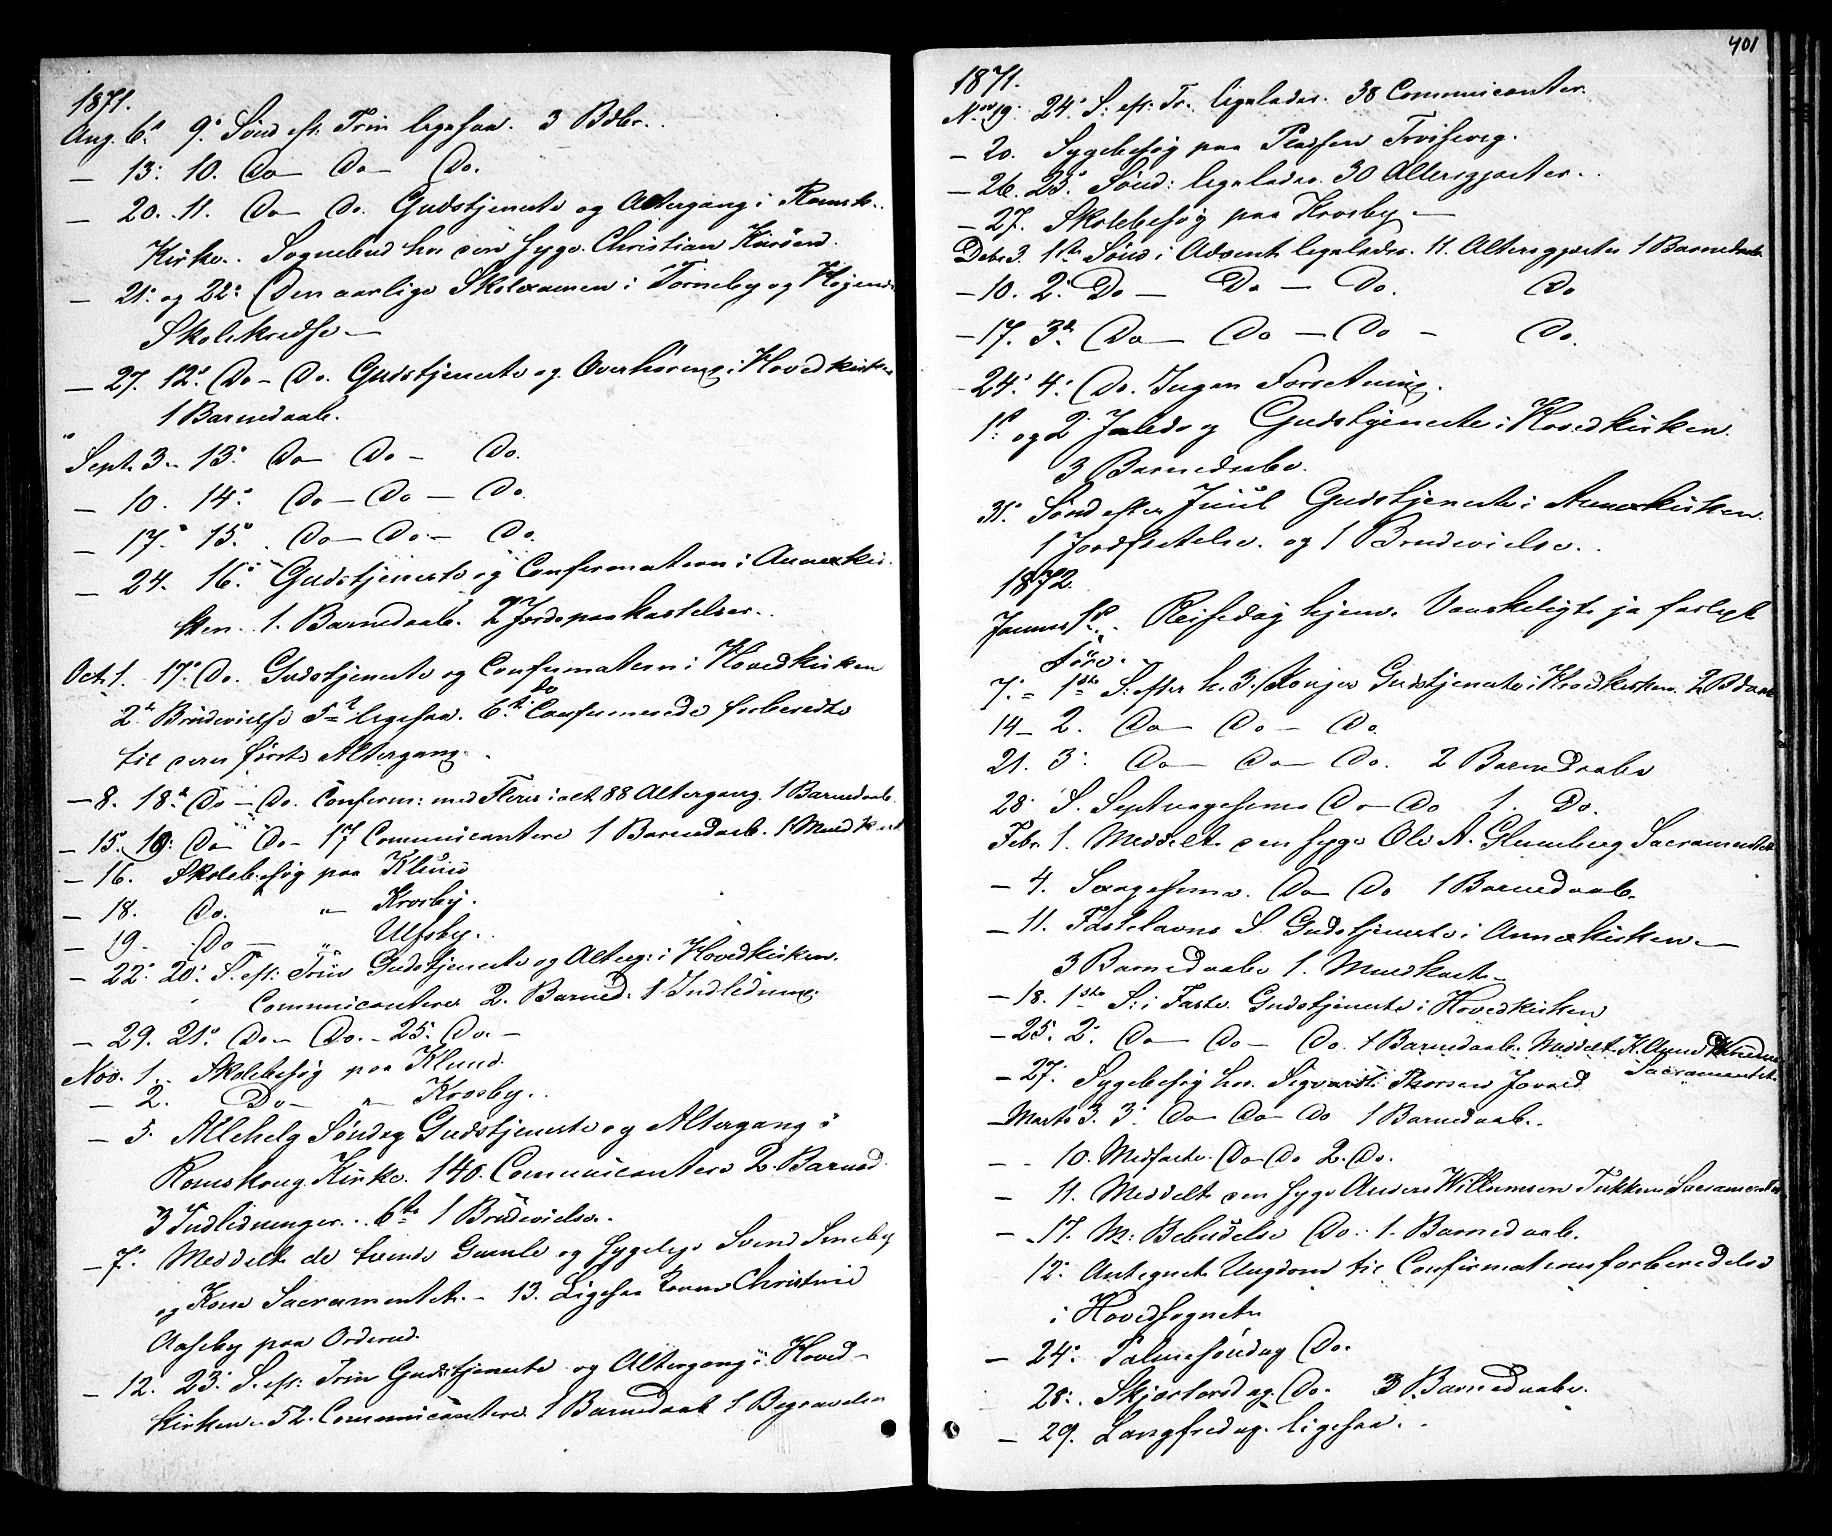 1871.
Aug. 6. 9. Sønd. eft. Trin ligesaa. 3 Bdbr.
— 13. 10. Do — Do — Do.
— 20. 11. Do — Do. Gudstjeneste og Altergang i Romsk.
Kirke. Sognebud hos den syge Christian
— 21. og 22. Den aarlige Skolexamen i Torneby og
Skolekredse —
— 27. 12. Do — Do. Gudstjeneste og Overhøring i Hovedkirken
1 Barnedaab.
Sept. 3. 13. Do — Do — Do.
— 10. 14. Do — Do — Do.
— 17. 15. Do — Do — Do.
— 24. 16. Gudstjeneste og Confirmation i Annexkir-
ken. 1. Barnedaab. 2 Jordspaakastelser.
Oct. 1. 17. Do. Gudstjeneste og Confirmation i Hovedkirken
2 Brudevielse ligesaa. 6. do Confirmerede forberedte
til deres første Altergang.
— 8. 18. Do — Do. Conferm: med Flere i alt 88 Altergang. 1 Barnedaab.
— 15. 19. Do — Do — 17 Communicantere 1 Barnedaab.
— 16. Skolebesøg paa Klund
— 18. Do. " Krosby.
— 19. Do — " Ulfsby.
— 22. 20. S. eft. Trin Gudstjeneste og Alterg. i Hovedkirken.
Communicantere 2. Barned. 1 Indledning.
— 29. 21. Do — Do. — 25. Do. —
Nov. 1. Skolebesøg paa Klund.
— 2. Do — " Krosby.
— 5. Allehelg Søndag Gudstjeneste og Altergang i
Romskoug Kirke. 140. Communicantere 2. Barned.
3 Indledninger. 6te 1 Brudevielse.
— 7. Meddelt de tvende Gamle og sygelige Svend Smeby
og Kone Sacramentet. — 13. Ligesaa Christine
Aaseby paa Orderud.
— 12. 23. S. eft. Trin Gudstjeneste og Altergang i Hoved-
kirken. 52. Communicantere 1 Barnedaab 1 Begravelse
401
1871.
Nov. 19. 24. S. eft. Tr. ligeledes. 38 Communicanter.
— 20. Sygebesøg paa Pladsen
— 26. 25. Sønd: ligeledes. 30 Altersgjester.
— 27. Skolebesøg paa Krosby —
Debr 3. 1ste Sønd i Advent ligeledes. 11. Altersgjester 1 Barnedaab
— 10. 2. Do — Do — Do. Do
— 17. 3. Do — Do — Do — Do.
24. 4. Do. Ingen Forretning.
1. og 2 Juledag Gudstjeneste i Hovedkirken.
3 Barnedaabe.
31. Sønd efter Juul Gudstjeneste i Annexkirken.
1 Jordfæstelse. og 1 Brudevielse.
1872.
Januar 1. Reisedag hjem. Vanskeligt ja farligt
Føre.
7. — 1ste S. efter h. 3. Konger Gudstjeneste i Hovedkirken. 2 Bdaab
14 — 2. Do — Do — Do.
21. 3. Do — Do — Do. 2 Barnedaabe
28. S. Septuagesima Do — Do 1. Do.
Febr 1. Meddelt den syge Ole A. Glumberg Sacramentet
— 4. Sexagesima. Do — Do 1 Barnedaab.
— 11. Fastelavns S. Gudstjeneste i Annexkirken. —
3 Barnedaabe 1.
— 18. 1ste S: i Faste. Gudstjeneste i Hovedkirken
— 25. 2. Do — Do — Do. 1 Barnedaab. Meddelt K. Klund
Sacramentet.
— 27. Sygebesøg hos Sigvardt Thorsen
— Marts 3. 3. Do — Do — Do 1 Barnedaab.
— 10. Midfaste. Do — Do 2. Do.
— 11. Meddelt den syge Anders Willumsen Tukken Sacramentet
— 17. M. Bebudelse Do. 1. Barnedaab.
12. Antegnet Ungdom til Confirmationsforberedelse
i Hovedsognet
— 24. Palmesøndag Do.
28. Skjærtorsdag. Do. 3 Barnedaabe.
— 29. Langfredag. ligesaa.